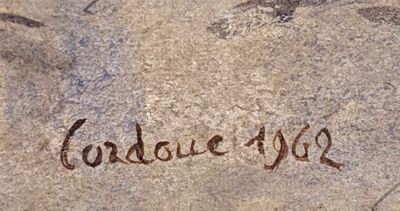 Cordoue 1962